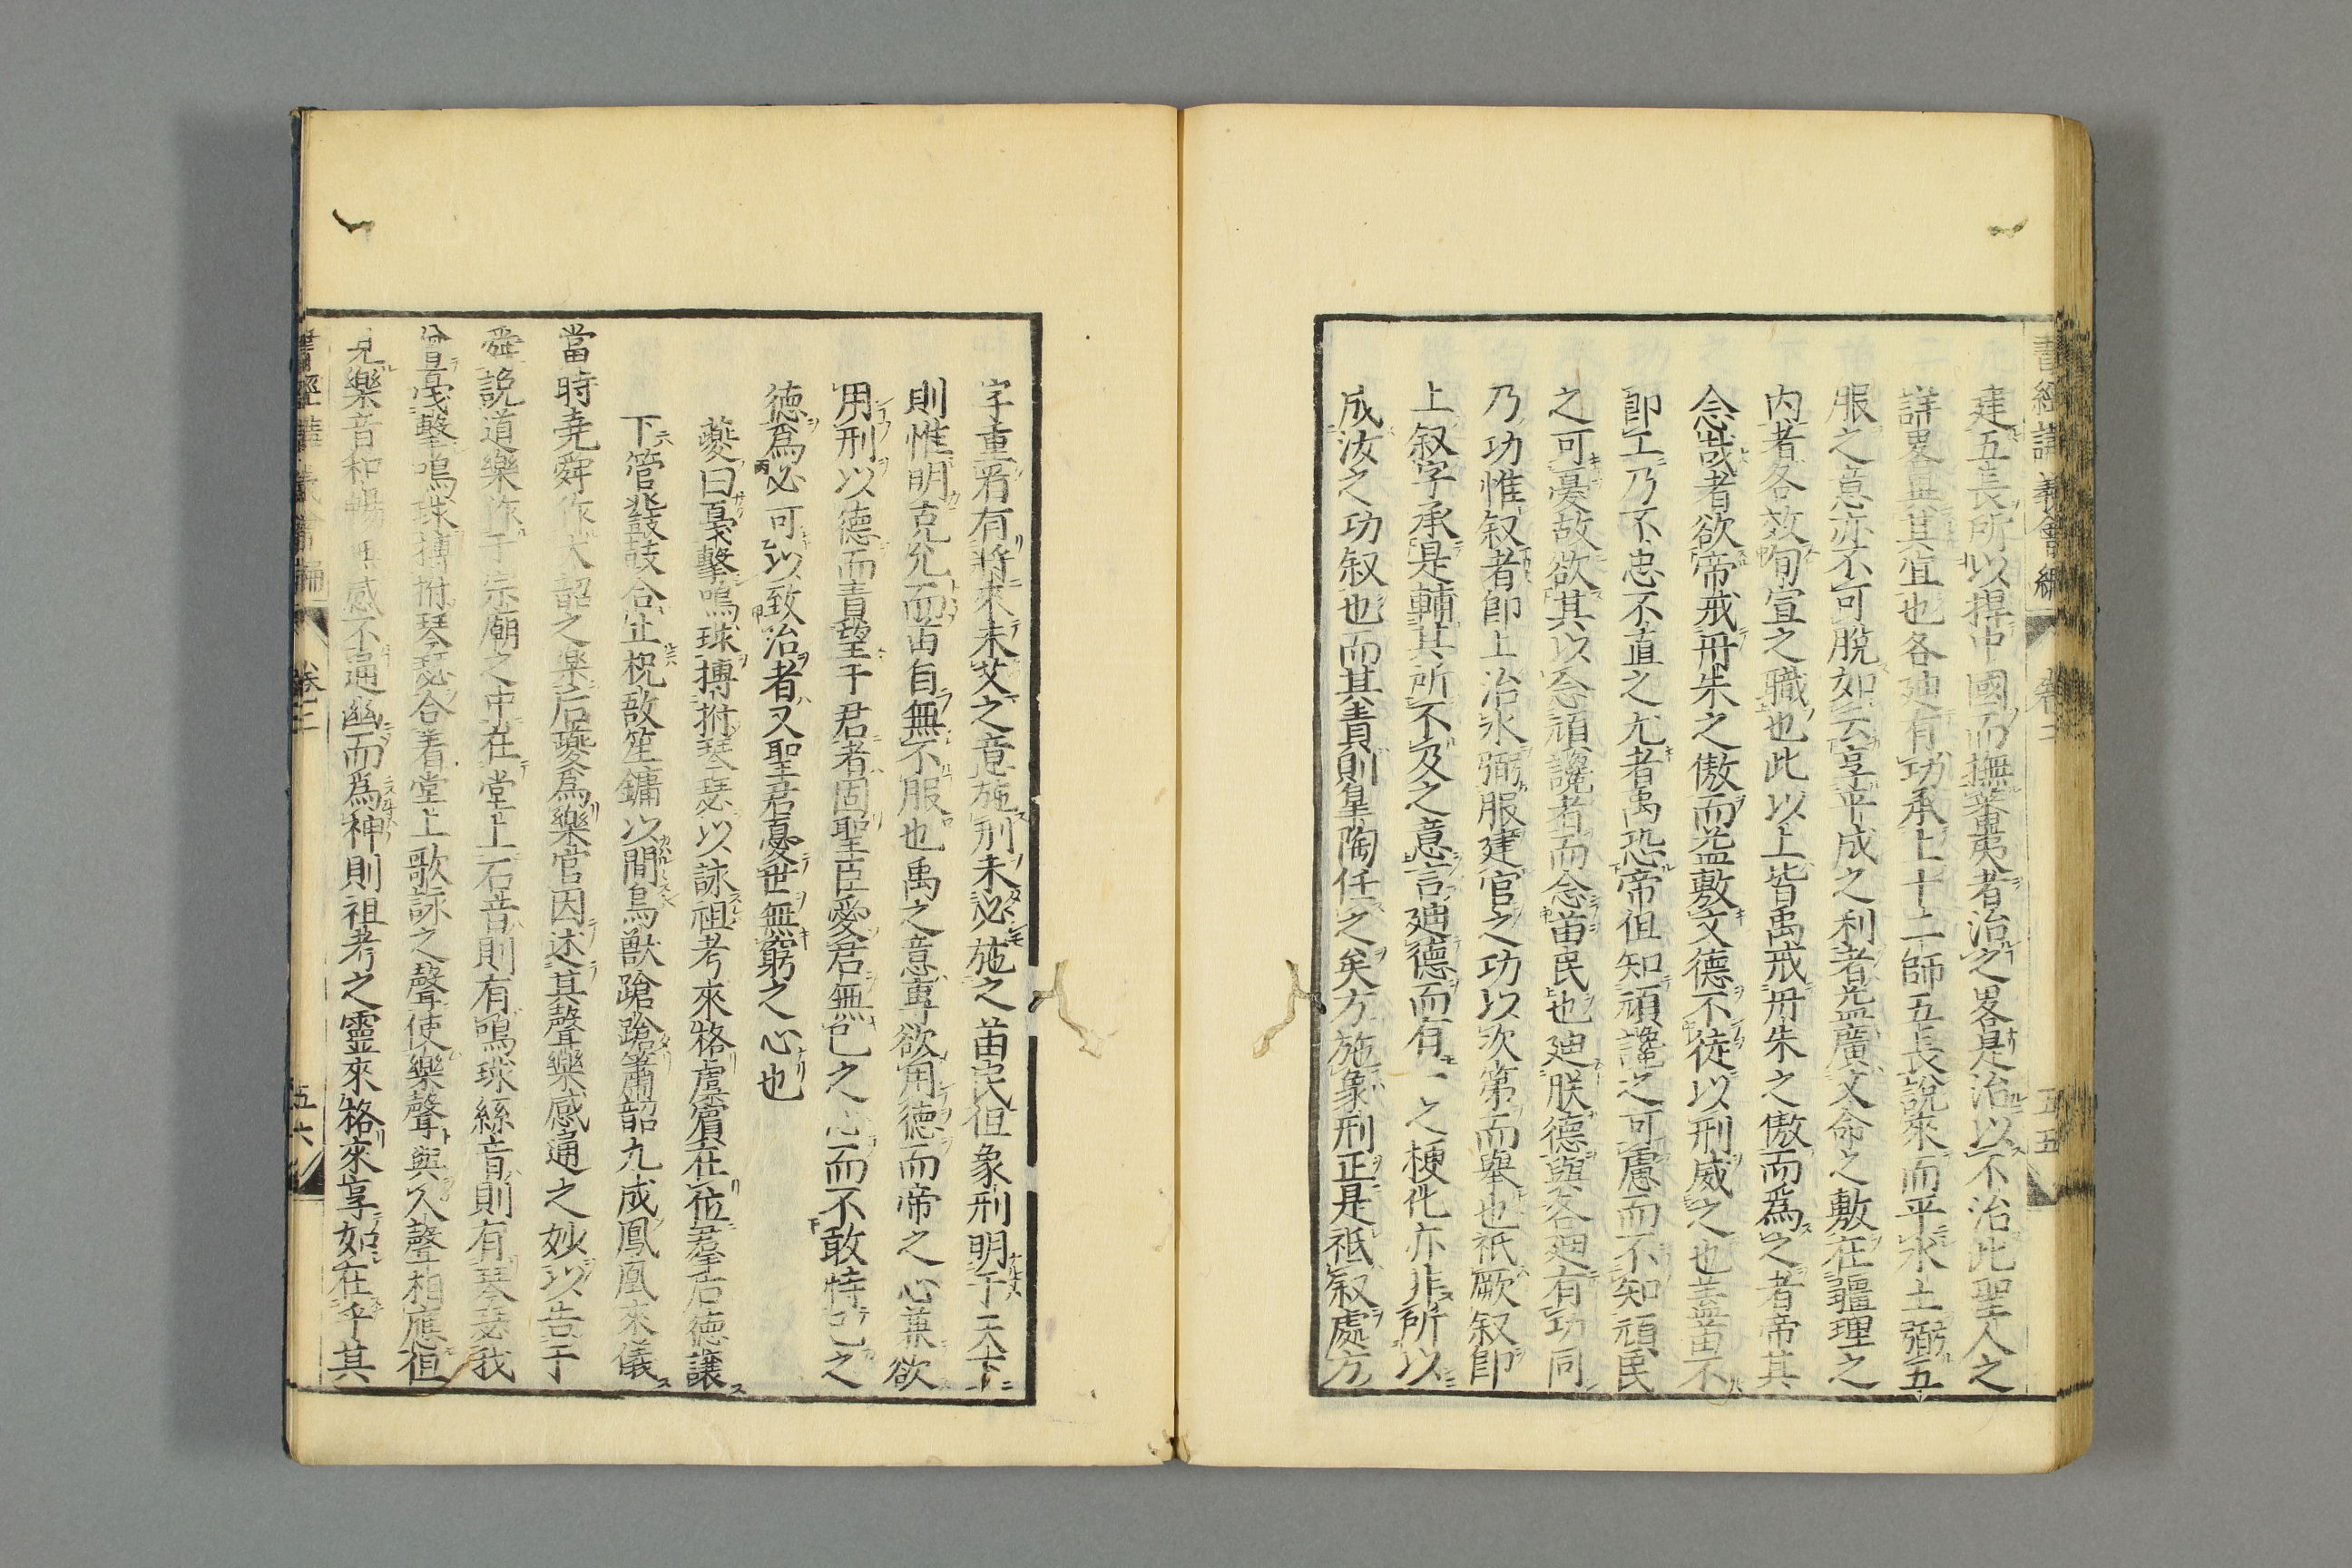 書經講義會編 卷二 五五
建五長所以捍中國而撫蕃夷者治之畧是治以不治此聖人之
詳畧異其宜也各迪有功承上十二師五長說來而平水土弼五
服之意亦不可脫如云享平成之利者益廣文命之敷在疆理之
内者各效旬宣之職也此以上皆禹戒丹朱之傲而爲之者帝其
念哉者欲帝戒丹朱之傲而益敷文德不徒以刑威之也蓋苗不
即工乃不忠不直之尤者禹恐帝但知頑讒之可慮而不知頑民
之可憂故欲其以念頑讒者而念苗民也迪朕德與各迪有功同
乃功惟叙者即上治水弼服建官之功以次第而舉也祇厥叙即
上叙字承是輔其所不及之意言迪德而有之梗化亦非所以
成汝之功叙也而其責則皐陶任之矣方施象刑正是祇叙處方
字重看有將來未艾之意施刑未必施之苗民但象刑明于天下
則惟明克允而苗自無不服也禹之意專欲用德而帝之心兼欲
用刑以德而責望于君者固聖臣愛君無已之心而不敢恃己之
德爲必可以致治者又聖君憂世無窮之心也
夔曰戛擊鳴球搏拊琴瑟以詠祖考來格虞賓在位羣后德讓
下管鼗鼓合止柷敔笙鏞以間鳥獸蹌蹌簫韶九成鳳凰來儀
當時堯舜作大韶之樂后夔爲樂官因述其聲樂感通之妙以告于
舜說道樂作于宗廟之中在堂上石音則有鳴球絲音則有琴瑟我
嘗戛擊鳴球搏拊琴瑟合着堂上歌詠之聲使樂聲與人聲相應但
見樂音和暢無感不通幽而爲神則祖考之靈來格來享如在乎其
書經講義會編 卷二 五六